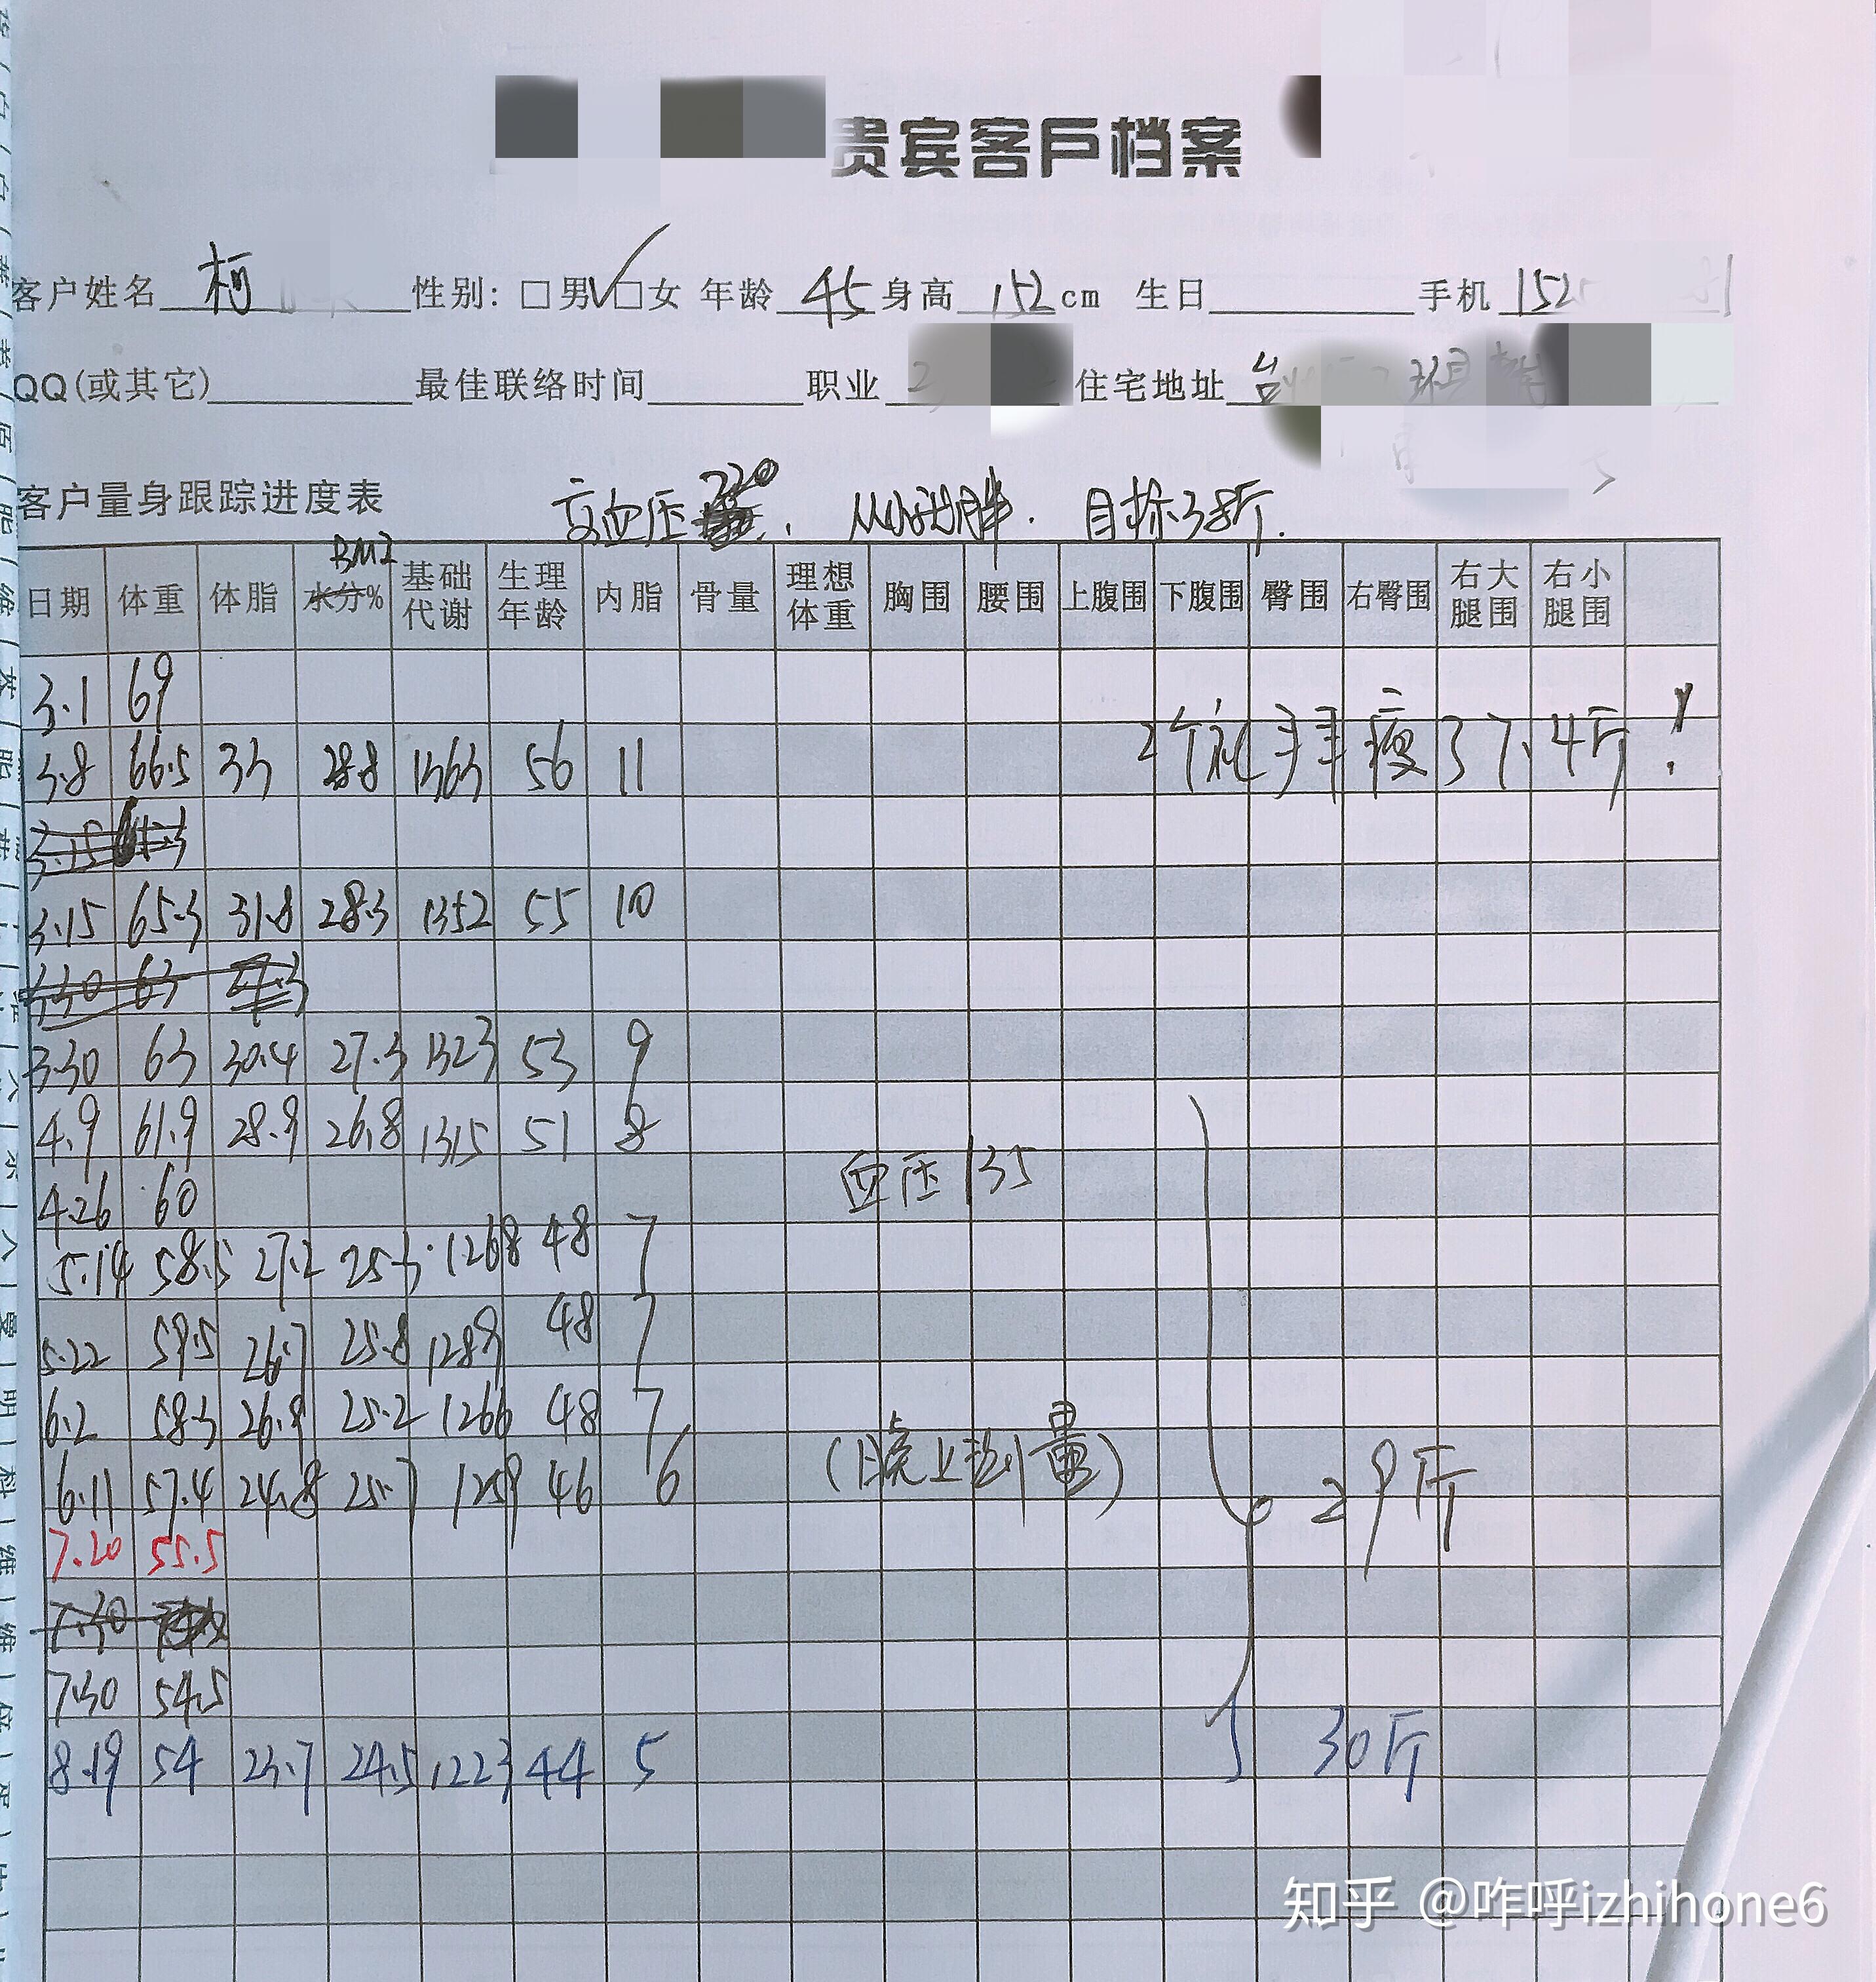 贵宾客戶档案
客户姓名 柯 性别: □男 ✓□女 年龄 45 身高 152 cm 生日 手机 152
QQ(或其它) 最佳联络时间 职业 住宅地址 台州
客户量身跟踪进度表 高血压 220. 从小就胖. 目标38斤.
日期 体重 体脂 BMI 水分% 基础代谢 生理年龄 内脂 骨量 理想体重 胸围 腰围 上腹围 下腹围 臀围 右臀围 右大腿围 右小腿围
3.1 69
3.8 66.5 33 28.8 1363 56 11 2个礼拜瘦了7.4斤!
3.15
3.15 65.3 31.8 28.3 1352 55 10
3.30 63
3.30 63 30.4 27.3 1323 53 9
4.9 61.9 28.9 26.8 1315 51 8
4.26 60 血压135
5.14 58.5 27.2 25.3 1268 48 7
5.22 59.5 26.7 25.8 1289 48 7
6.2 58.3 26.9 25.2 1266 48 7
6.11 57.4 24.8 25.7 1259 46 6 (晚上测量) 29斤
7.20 55.5
7.30
7.30 54.5
8.19 54 23.7 24.5 1223 44 5 30斤
知乎 @咋呼izhihone6